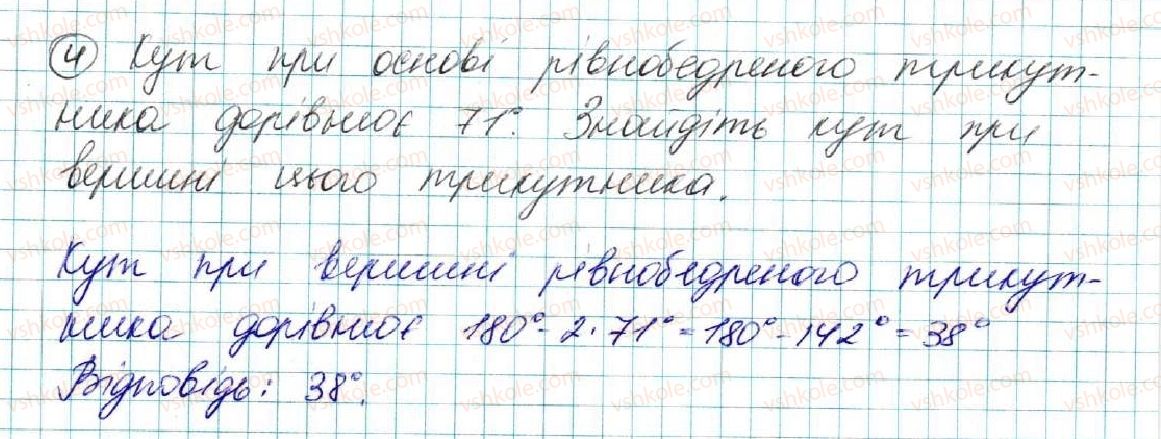 ④ Кут при основі рівнобедреного трикут-
ника дорівнює 71°. Знайдіть кут при
вершині цього трикутника.
Кут при вершині рівнобедреного трикут-
ника дорівнює 180° - 2 · 71° = 180° - 142° = 38°
Відповідь: 38°.